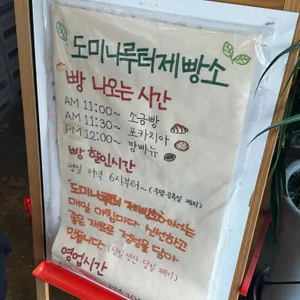 도미나루터제빵소
빵 나오는 시간
AM 11:00~ 소금빵
AM 11:30~ 포카치아
PM 12:00~ 깜빠뉴
빵 할인시간
평일 저녁 6시부터~ (주말·공휴일 제외)
도미나루터 제빵소에서는
매일 아침마다 신선하고
좋은 재료로 정성을 담아
만듭니다. (당일 생산 당일 폐기)
영업시간